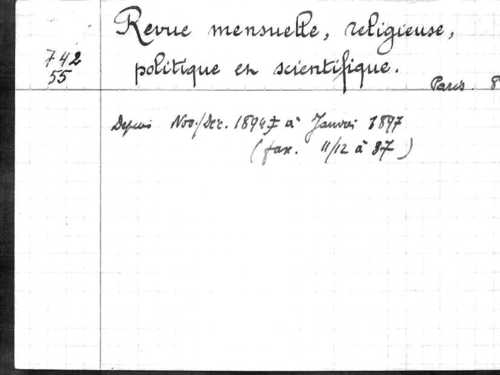 Revue mensuelle, religieuse,
742
politique et scientifique.
55
Paris. 8
Depuis Nov./Déc. 1894 à Janvier 1897
(fax. 11/12 à 37)